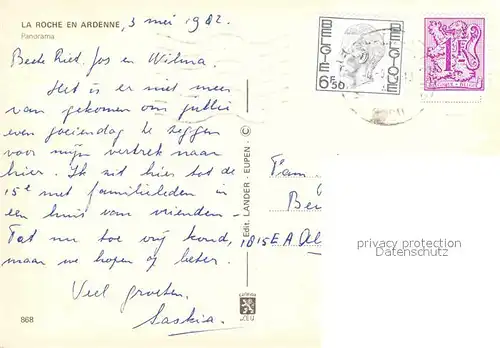 LA ROCHE EN ARDENNE, 3 mei 1982.
Panorama
Beste Riet, Jos en Wilma,
Het is er niet meer
van gekomen om jullie
even goeiendag te zeggen
voor mijn vertrek naar
hier. Ik zit hier tot de
15e met familieleden in
een huis van vrienden -
Tot nu toe vrij koud,
maar we hopen op beter.
Veel groeten,
Saskia.
868
Edit. LANDER - EUPEN - ©
BELGIE
BELGIQUE
6F50
1F
Fam.
Be
1815 E.A. Al
privacy protection
Datenschutz